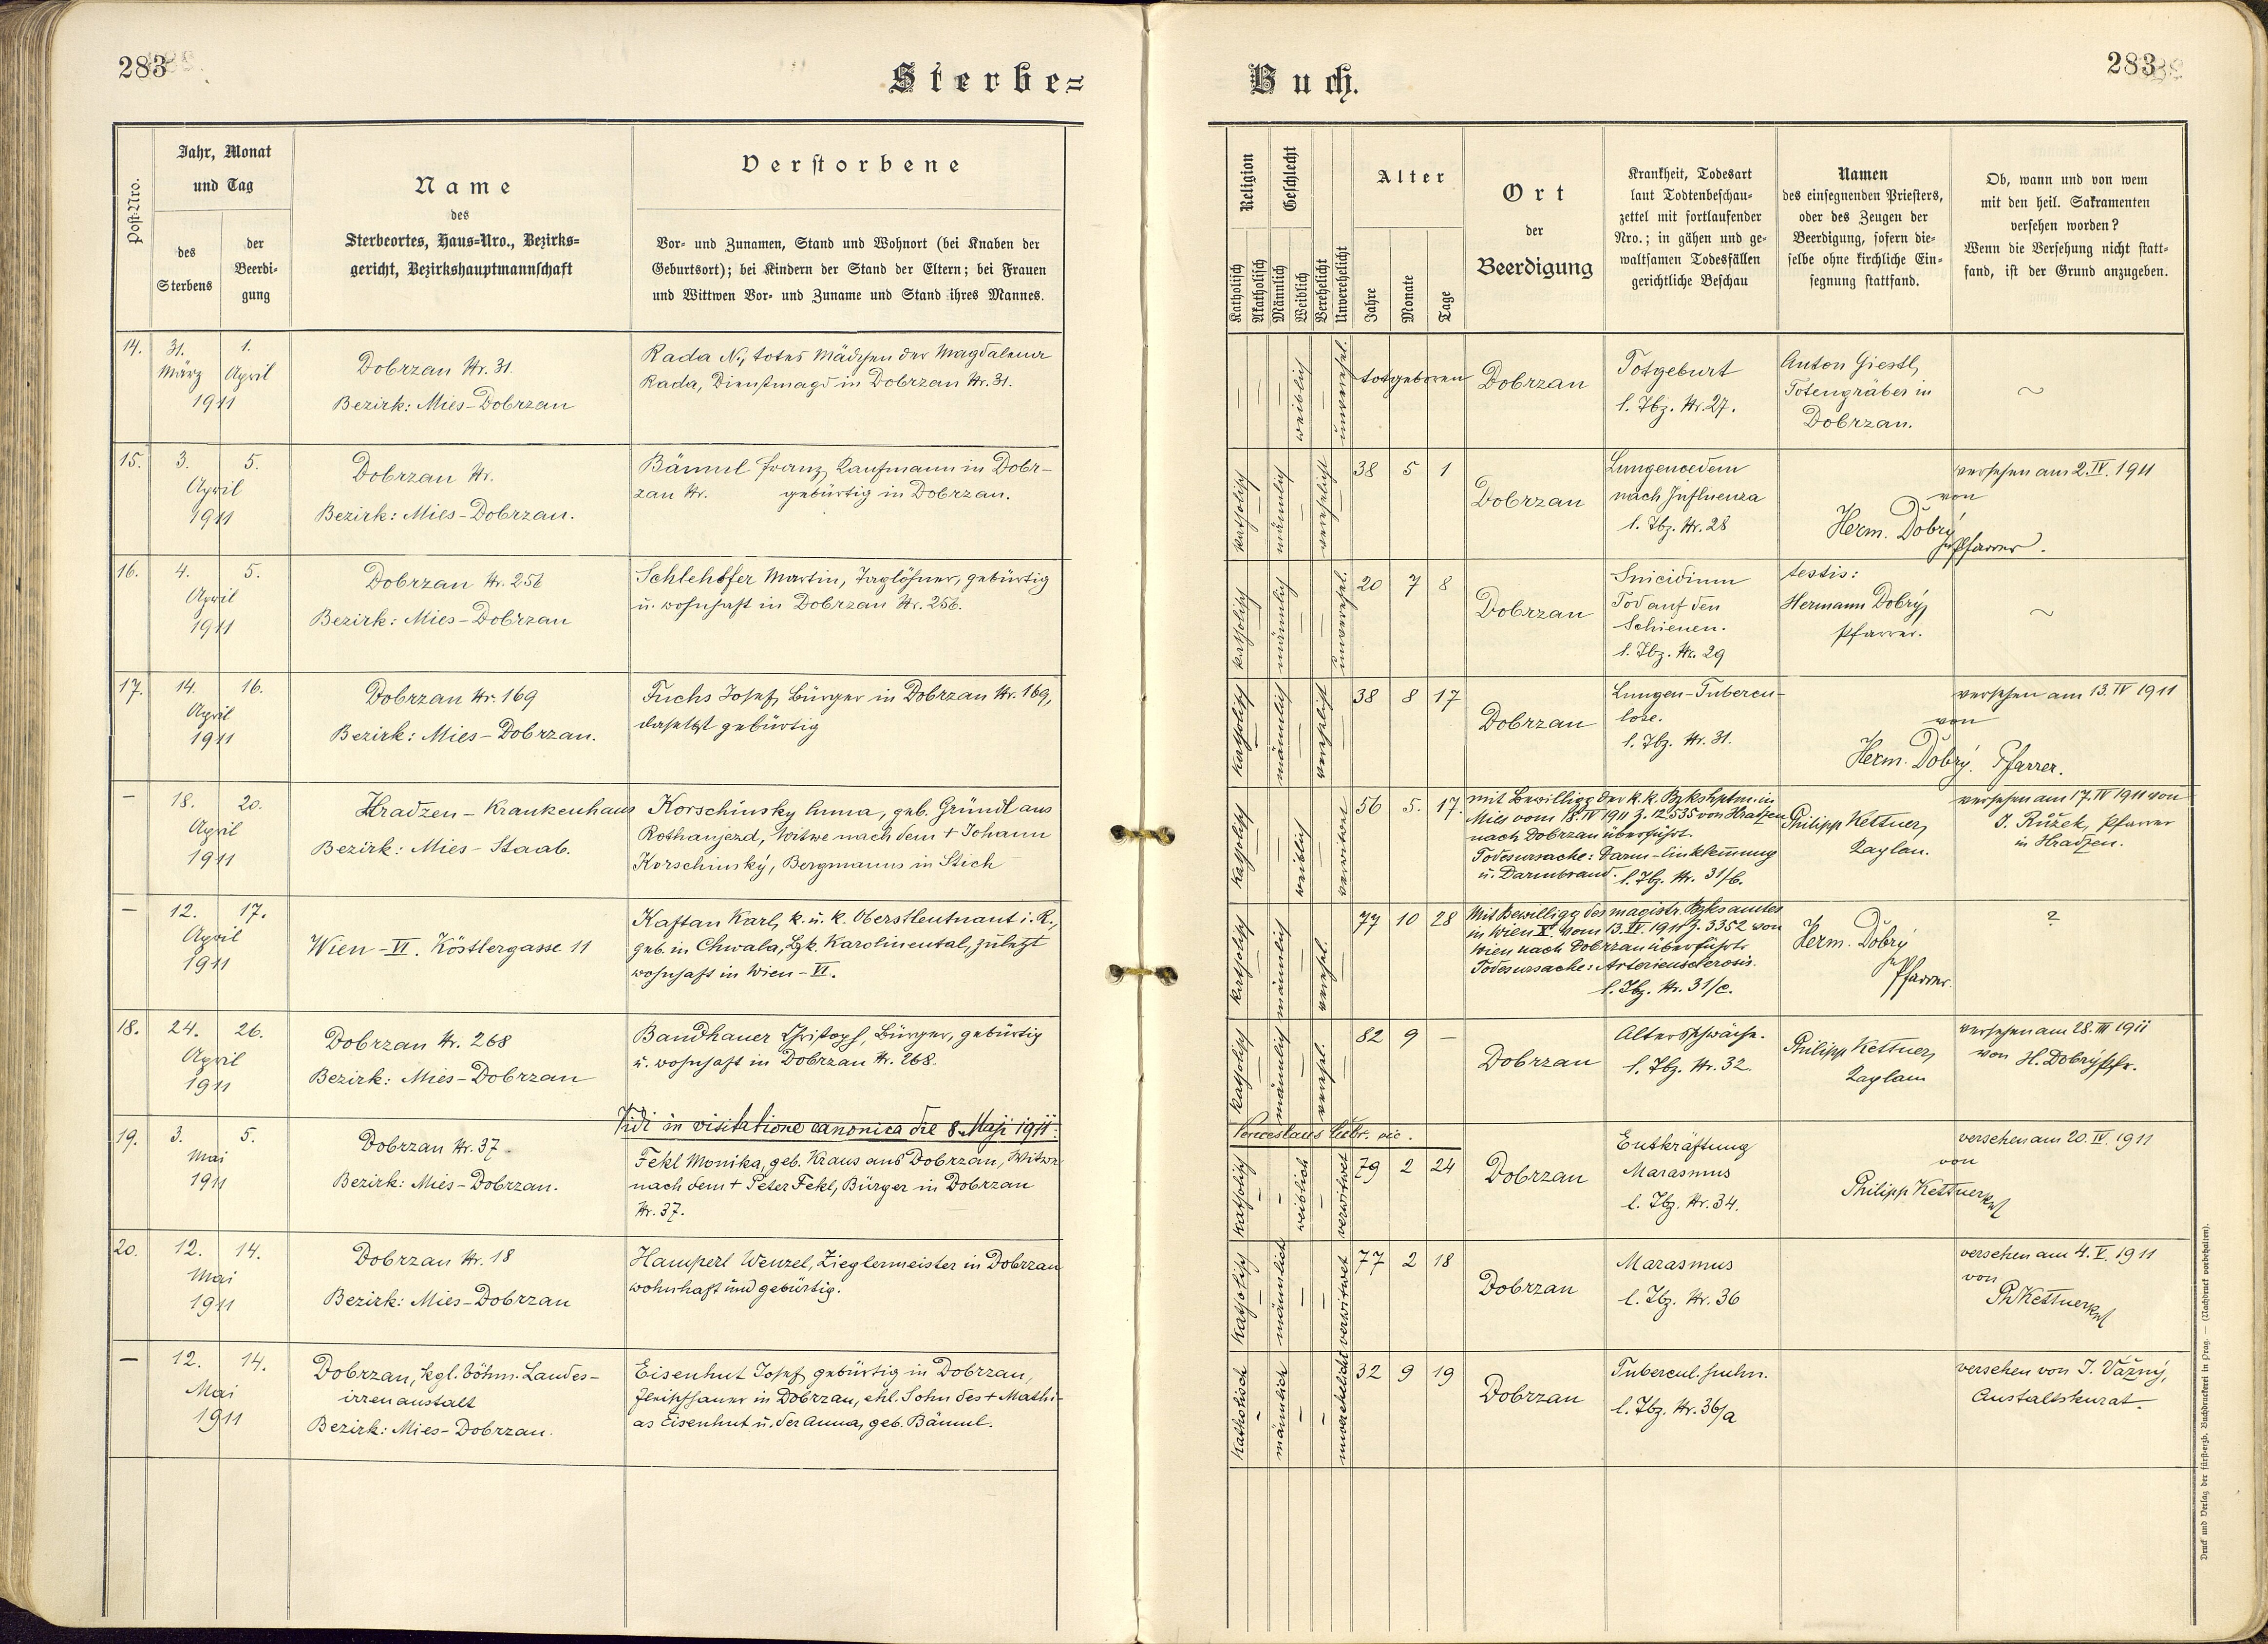 283
Sterbe=
Buch.
283
Post-Nro.
Jahr, Monat
und Tag
des
Sterbens
der
Beerdi-
gung
Name
des
Sterbeortes, Haus=Nro., Bezirks=
gericht, Bezirkshauptmannschaft
Verstorbene
Vor- und Zunamen, Stand und Wohnort (bei Knaben der
Geburtsort); bei Kindern der Stand der Eltern; bei Frauen
und Wittwen Vor- und Zuname und Stand ihres Mannes.
Religion
Katholisch
Akatholisch
Geschlecht
Männlich
Weiblich
Verehelicht
Unverehelicht
Alter
Jahre
Monate
Tage
Ort
der
Beerdigung
Krankheit, Todesart
laut Todtenbeschau-
zettel mit fortlaufender
Nro.; in gähen und ge-
waltsamen Todesfällen
gerichtliche Beschau
Namen
des einsegnenden Priesters,
oder des Zeugen der
Beerdigung, sofern die-
selbe ohne kirchliche Ein-
segnung stattfand.
Ob, wann und von wem
mit den heil. Sakramenten
versehen worden?
Wenn die Versehung nicht statt-
fand, ist der Grund anzugeben.
14.
31.
März
1.
April
1911
Dobrzan Nr. 31.
Bezirk: Mies-Dobrzan
Rada N., totes Mädchen der Magdalena
Rada, Dienstmagd in Dobrzan Nr. 31.
weiblich
unverehel.
totgeboren
Dobrzan
Totgeburt
l. Tbz. Nr. 27.
Anton Giestl,
Totengräber in
Dobrzan.
~
15.
3.
5.
April
1911
Dobrzan Nr.
Bezirk: Mies-Dobrzan.
Bäuml Franz, Kaufmann in Dobr-
zan Nr. gebürtig in Dobrzan.
katholisch
männlich
verehelicht
38 5 1
Dobrzan
Lungenoedem
nach Influenza
l. Tbz. Nr. 28
versehen am 2. IV. 1911
von
Herm. Dobrý
Pfarrer.
16.
4.
5.
April
1911
Dobrzan Nr. 256
Bezirk: Mies-Dobrzan
Schlehofer Martin, Taglöhner, gebürtig
u. wohnhaft in Dobrzan Nr. 256.
katholisch
männlich
unverehel.
20 7 8
Dobrzan
Suicidium
Tod auf den
Schienen.
l. Tbz. Nr. 29
testis:
Hermann Dobrý,
Pfarrer.
~
17.
14.
16.
April
1911
Dobrzan Nr. 169
Bezirk: Mies-Dobrzan.
Fuchs Josef, Bürger in Dobrzan Nr. 169,
daselbst gebürtig
katholisch
männlich
verehelicht
38 8 17
Dobrzan
Lungen-Tubercu-
lose.
l. Tbz. Nr. 31.
versehen am 13. IV 1911
von
Herm. Dobrý. Pfarrer.
—
18.
20.
April
1911
Hradzen - Krankenhaus
Bezirk: Mies-Staab.
Korschinsky Anna, geb. Gründl aus
Rothaujezd, Witwe nach dem + Johann
Korschinský, Bergmanns in Stich
katholisch
weiblich
verwitwet
56 5. 17.
mit Bewilligg der k. k. Bzkshptm. in
Mies vom 18. IV 1911 Z. 12.535 von Hradzen
nach Dobrzan überführt.
Todesursache: Darm-Einklemmung
u. Darmbrand. l. Tbz. Nr. 31/b.
Philipp Kettner,
Kaplan.
versehen am 17. IV 1911 von
J. Růžek, Pfarrer
in Hradzen.
—
12.
17.
April
1911
Wien-VI. Köstlergasse 11
Kaftan Karl, k. u. k. Oberstleutnant i. R.,
geb. in Chwala, Bzk. Karolinental, zuletzt
wohnhaft in Wien-VI.
katholisch
männlich
verehel.
77 10 28
Mit Bewilligg des magistr. Bzksamtes
in Wien X. vom 13. IV. 1911 Z. 3352 von
Wien nach Dobrzan überführt.
Todesursache: Arteriensclerosis.
l. Tbz. Nr. 31/c.
Herm. Dobrý
Pfarrer.
?
18.
24.
26.
April
1911
Dobrzan Nr. 268
Bezirk: Mies-Dobrzan
Bandhauer Christoph, Bürger, gebürtig
u. wohnhaft in Dobrzan Nr. 268.
katholisch
männlich
verehel.
82 9 —
Dobrzan
Altersschwäche.
l. Tbz. Nr. 32.
Philipp Kettner,
Kaplan
versehen am 28. III 1911
von H. Dobrý Pfr.
Vidi in visitatione canonica die 8. Maji 1911.
19.
3.
5.
Mai
1911
Dobrzan Nr. 37
Bezirk: Mies-Dobrzan.
Fekl Monika, geb. Kraus aus Dobrzan, Witwe
nach dem + Peter Fekl, Bürger in Dobrzan
Nr. 37.
katholisch
weiblich
verwitwet
79 2 24
Dobrzan
Entkräftung
Marasmus
l. Tbz. Nr. 34.
versehen am 20. IV. 1911
von
Philipp Kettner
20.
12.
14.
Mai
1911
Dobrzan Nr. 18
Bezirk: Mies-Dobrzan
Hamperl Wenzel, Zieglermeister in Dobrzan
wohnhaft und gebürtig.
katholisch
männlich
verwitwet
77 2 18
Dobrzan
Marasmus
l. Tbz. Nr. 36
versehen am 4. V. 1911
von
Ph Kettner
—
12.
14.
Mai
1911
Dobrzan, kgl. böhm. Landes-
irrenanstalt
Bezirk: Mies-Dobrzan.
Eisenhut Josef, gebürtig in Dobrzan,
Fleischhauer in Dobrzan, ehl. Sohn des + Mathi-
as Eisenhut u. der Anna, geb. Bäuml.
katholisch
männlich
unverehelicht
32 9 19
Dobrzan
Tubercul. pulm.
l. Tbz. Nr. 36/a
versehen von J. Vážný,
Anstaltskurat.
Druck und Verlag der fürst-erzb. Buchdruckerei in Prag. — (Nachdruck vorbehalten).